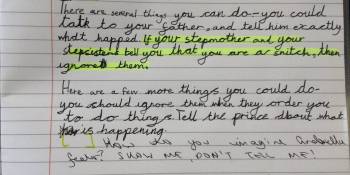 There are several things you can do-you could
talk to your father, and tell him exactly
what happened. If your stepmother and your
stepsisters tell you that you are a snitch, then
ignore them.
Here are a few more things you could do-
you should ignore them when they order you
to do things. Tell the prince about what
is happening.
[ ] HOW do you imagine Cinderella
feels? SHOW ME, DON'T TELL ME!